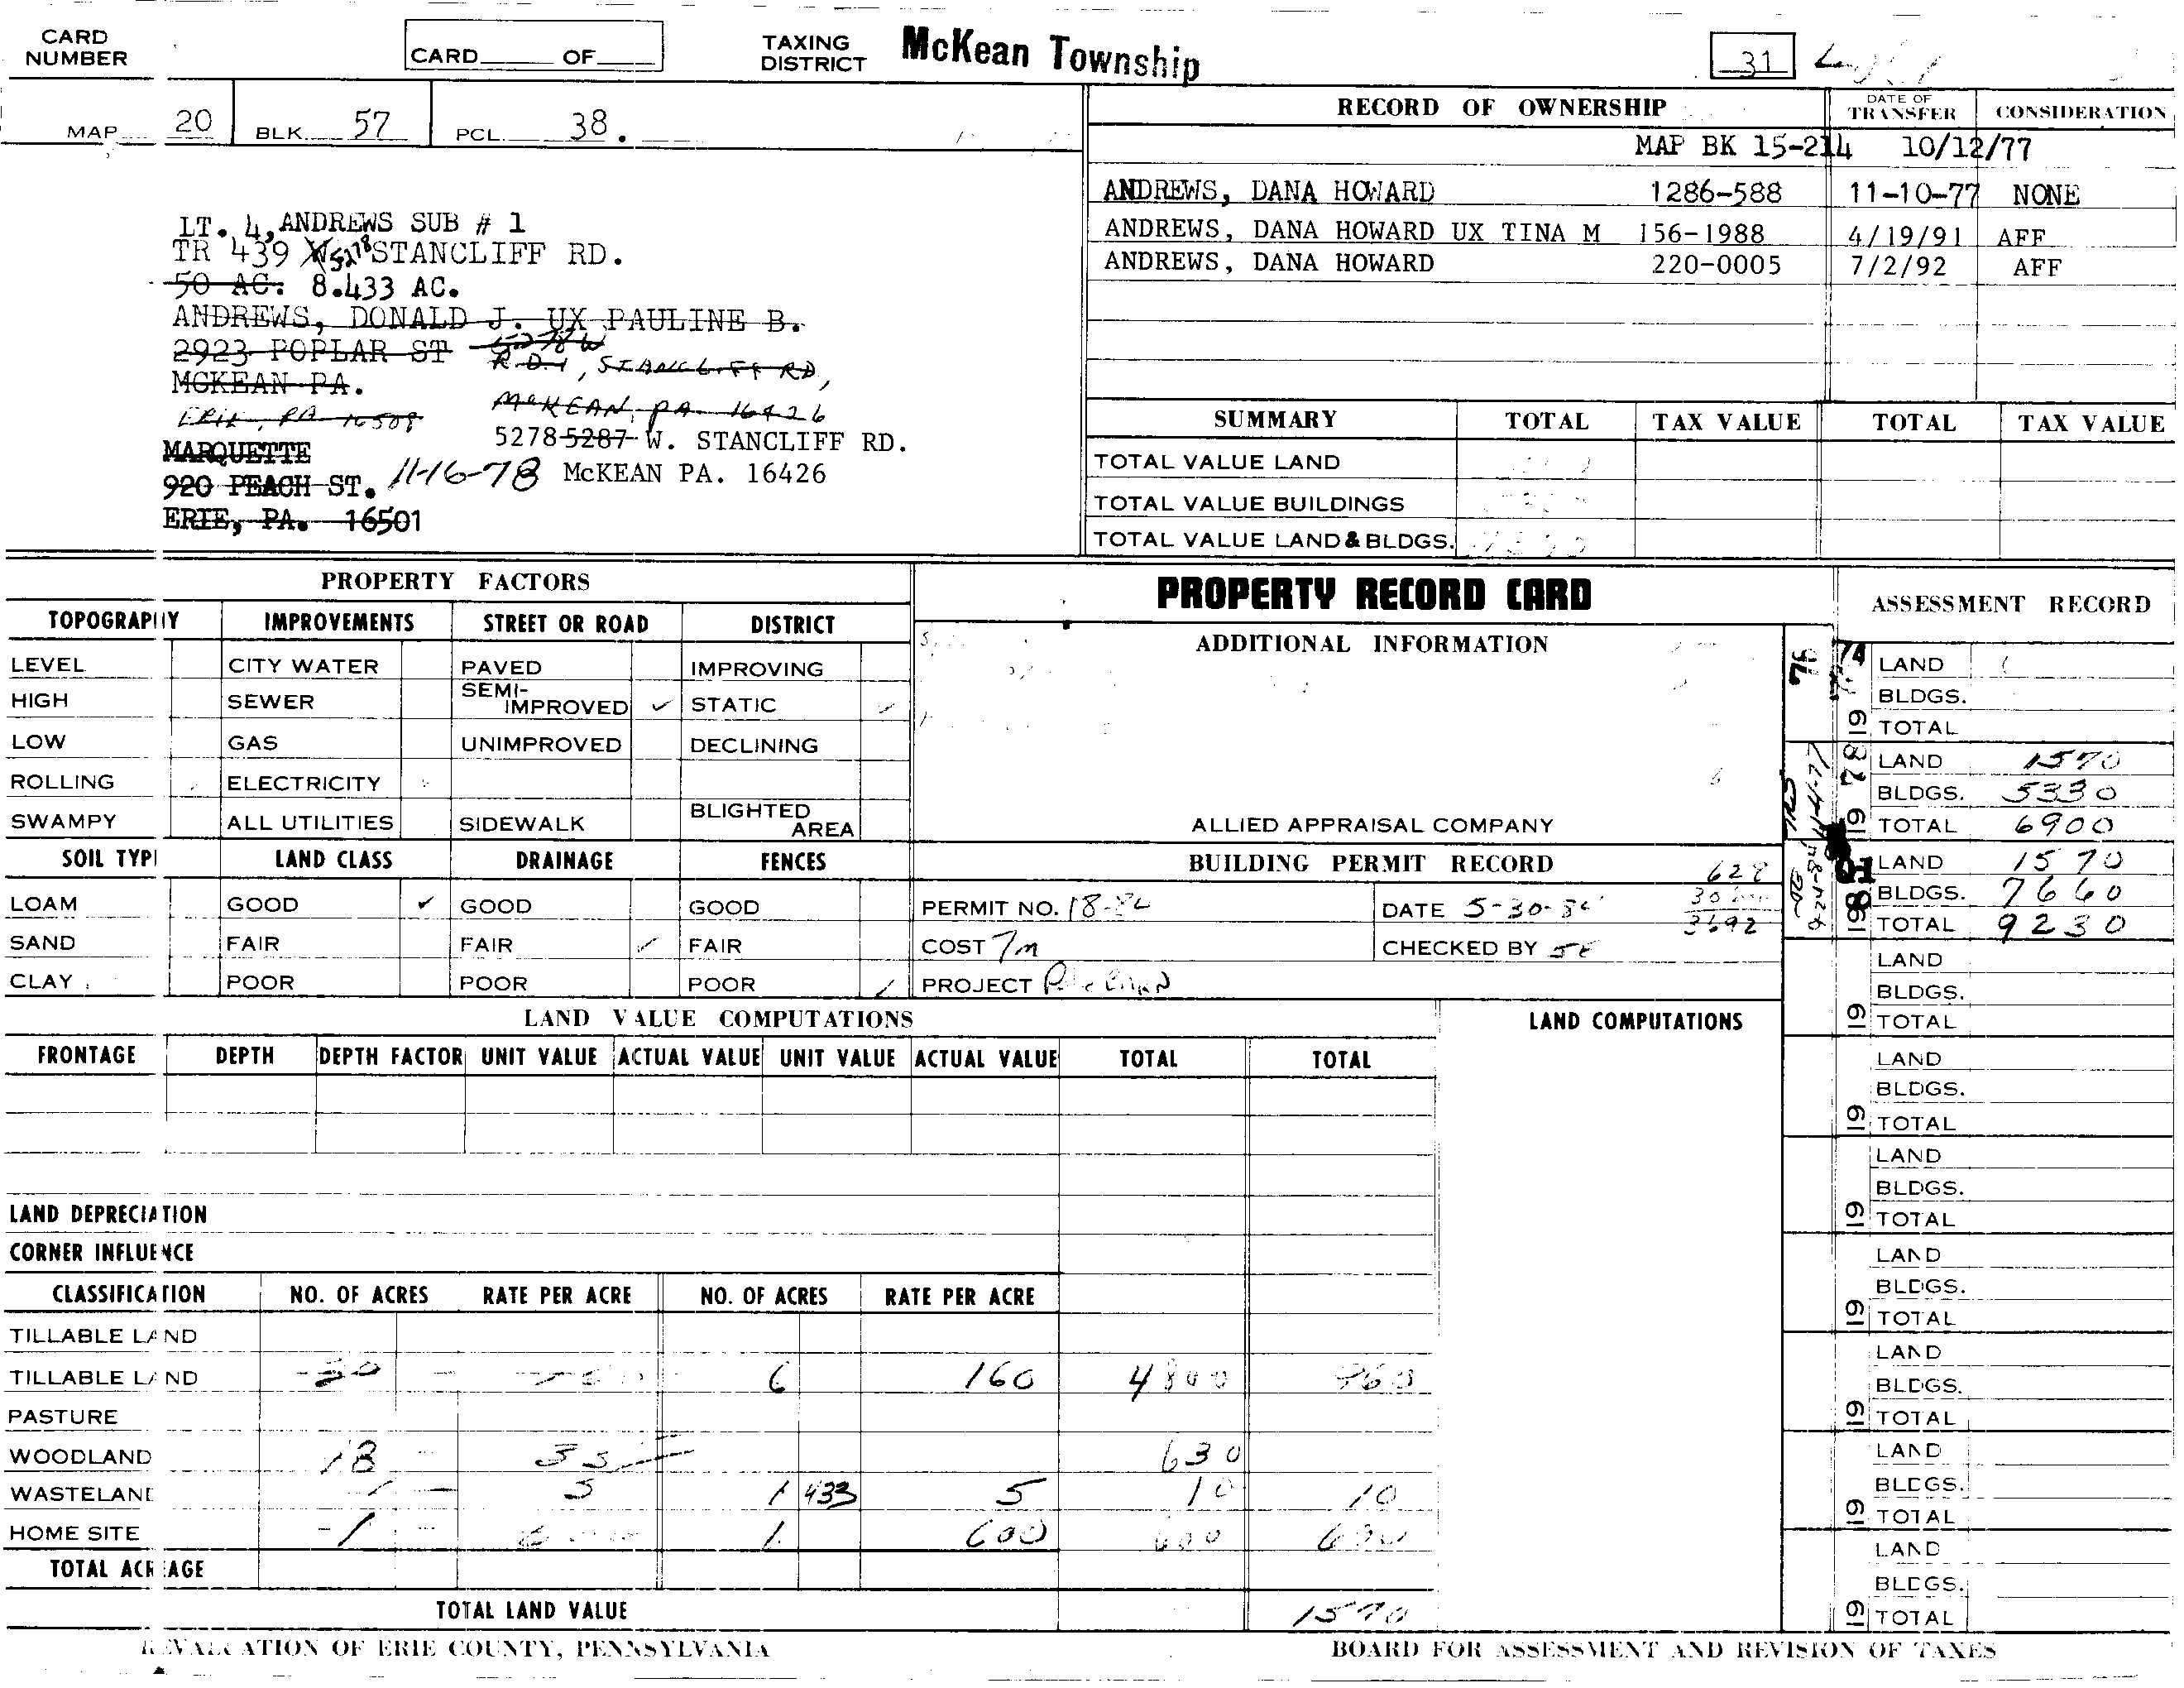 CARD NUMBER
CARD OF
TAXING DISTRICT McKean Township
31
MAP 20 BLK 57 PCL 38.
RECORD OF OWNERSHIP DATE OF TRANSFER CONSIDERATION
MAP BK 15-214 10/12/77
ANDREWS, DANA HOWARD 1286-588 11-10-77 NONE
ANDREWS, DANA HOWARD UX TINA M 156-1988 4/19/91 AFF
ANDREWS, DANA HOWARD 220-0005 7/2/92 AFF
LT. 4, ANDREWS SUB # 1
TR 439 5278 STANCLIFF RD.
50 AC. 8.433 AC.
ANDREWS, DONALD J. UX PAULINE B.
2923 POPLAR ST 5278 W
R.D.1, STANCLIFF RD,
MCKEAN PA.
McKEAN, PA. 16426
ERIE, PA 16508
5278 5287 W. STANCLIFF RD.
MARQUETTE
920 PEACH ST. 11-16-78 McKEAN PA. 16426
ERIE, PA. 16501
SUMMARY TOTAL TAX VALUE TOTAL TAX VALUE
TOTAL VALUE LAND
TOTAL VALUE BUILDINGS
TOTAL VALUE LAND & BLDGS.
PROPERTY FACTORS
TOPOGRAPHY IMPROVEMENTS STREET OR ROAD DISTRICT
LEVEL CITY WATER PAVED IMPROVING
HIGH SEWER SEMI-IMPROVED ✓ STATIC ✓
LOW GAS UNIMPROVED DECLINING
ROLLING ELECTRICITY
SWAMPY ALL UTILITIES SIDEWALK BLIGHTED AREA
SOIL TYPE LAND CLASS DRAINAGE FENCES
LOAM GOOD ✓ GOOD GOOD
SAND FAIR FAIR ✓ FAIR
CLAY POOR POOR POOR ✓
PROPERTY RECORD CARD
ADDITIONAL INFORMATION
ALLIED APPRAISAL COMPANY
BUILDING PERMIT RECORD
628
PERMIT NO. 18-84 DATE 5-30-84
3692
COST 7m CHECKED BY
PROJECT Pole Barn
ASSESSMENT RECORD
74 LAND
BLDGS.
19 TOTAL
78 LAND 1570
BLDGS. 5330
19 TOTAL 6900
LAND 1570
BLDGS. 7660
19 TOTAL 9230
LAND
BLDGS.
19 TOTAL
LAND
BLDGS.
19 TOTAL
LAND
BLDGS.
19 TOTAL
LAND
BLDGS.
19 TOTAL
LAND
BLDGS.
19 TOTAL
LAND
BLDGS.
19 TOTAL
LAND
BLDGS.
19 TOTAL
LAND VALUE COMPUTATIONS
LAND COMPUTATIONS
FRONTAGE DEPTH DEPTH FACTOR UNIT VALUE ACTUAL VALUE UNIT VALUE ACTUAL VALUE TOTAL TOTAL
LAND DEPRECIATION
CORNER INFLUENCE
CLASSIFICATION NO. OF ACRES RATE PER ACRE NO. OF ACRES RATE PER ACRE
TILLABLE LAND
TILLABLE LAND 30 6 160 4800 960
PASTURE
WOODLAND 18 35 630
WASTELAND 1 5 1 433 5 10 10
HOME SITE 1 1 600 600 600
TOTAL ACREAGE
TOTAL LAND VALUE 1570
REVALUATION OF ERIE COUNTY, PENNSYLVANIA
BOARD FOR ASSESSMENT AND REVISION OF TAXES